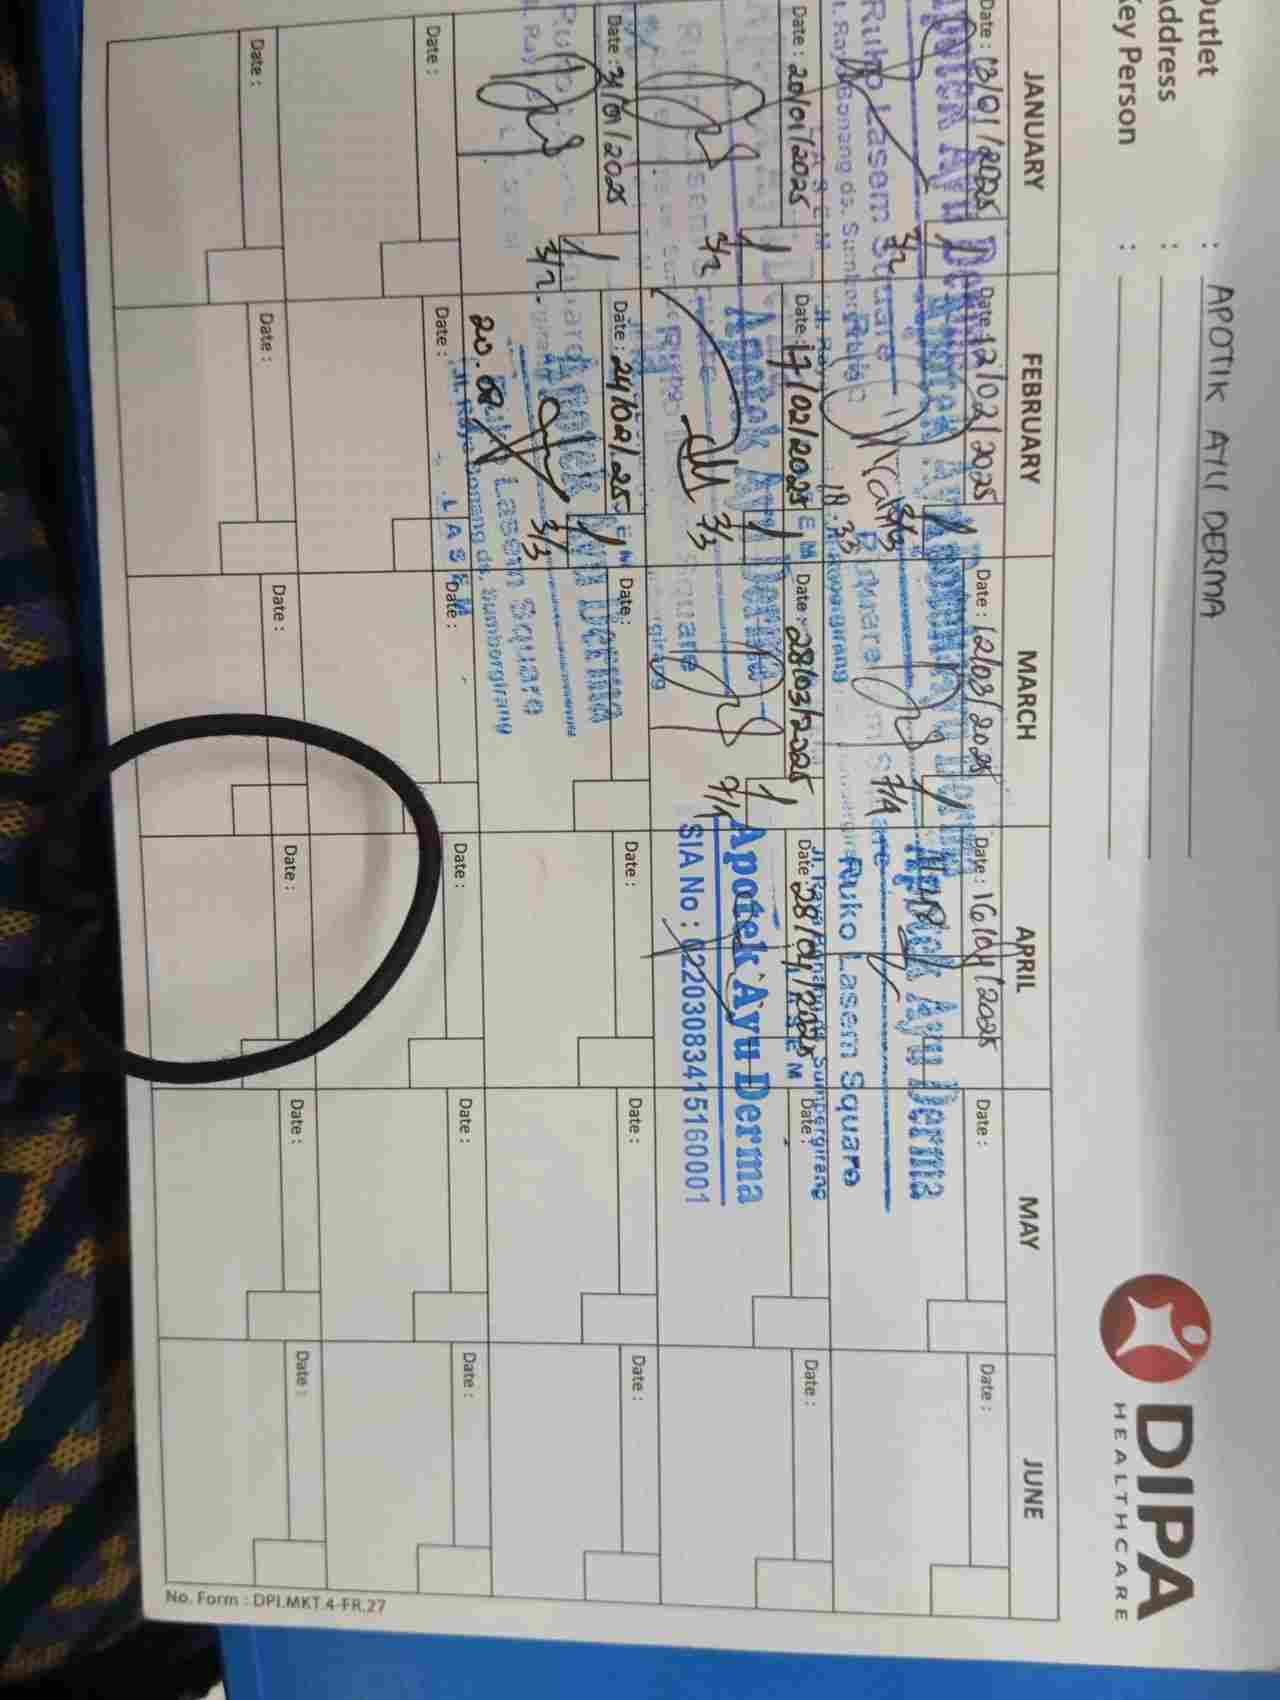 DIPA
HEALTHCARE
Outlet : APOTIK AYU DERMA
Address :
Key Person :
JANUARY FEBRUARY MARCH APRIL MAY JUNE
Date : 13/01/2025 Date : 12/02/2025 Date : 12/03/2025 Date : 16/04/2025 Date : Date :
3/2 3/3 7/4
Apotek Ayu Derma
Ruko Lasem Square
Jl. Raya Bonang ds. Sumbergirang
LASEM
Date : 20/01/2025 Date : 17/02/2025 Date : 28/03/2025 Date : 28/04/2025 Date : Date :
3/2 3/3 9/4
Apotek Ayu Derma
SIA No : 02203083415160001
Date : 31/01/2025 Date : 24/02/25 Date : Date : Date : Date :
3/2. 3/3
Apotek Ayu Derma
Ruko Lasem Square
Jl. Raya Bonang ds. Sumbergirang
LASEM
Date : Date : Date : Date : Date : Date :
Date : Date : Date : Date : Date : Date :
No. Form : DPI.MKT.4-FR.27